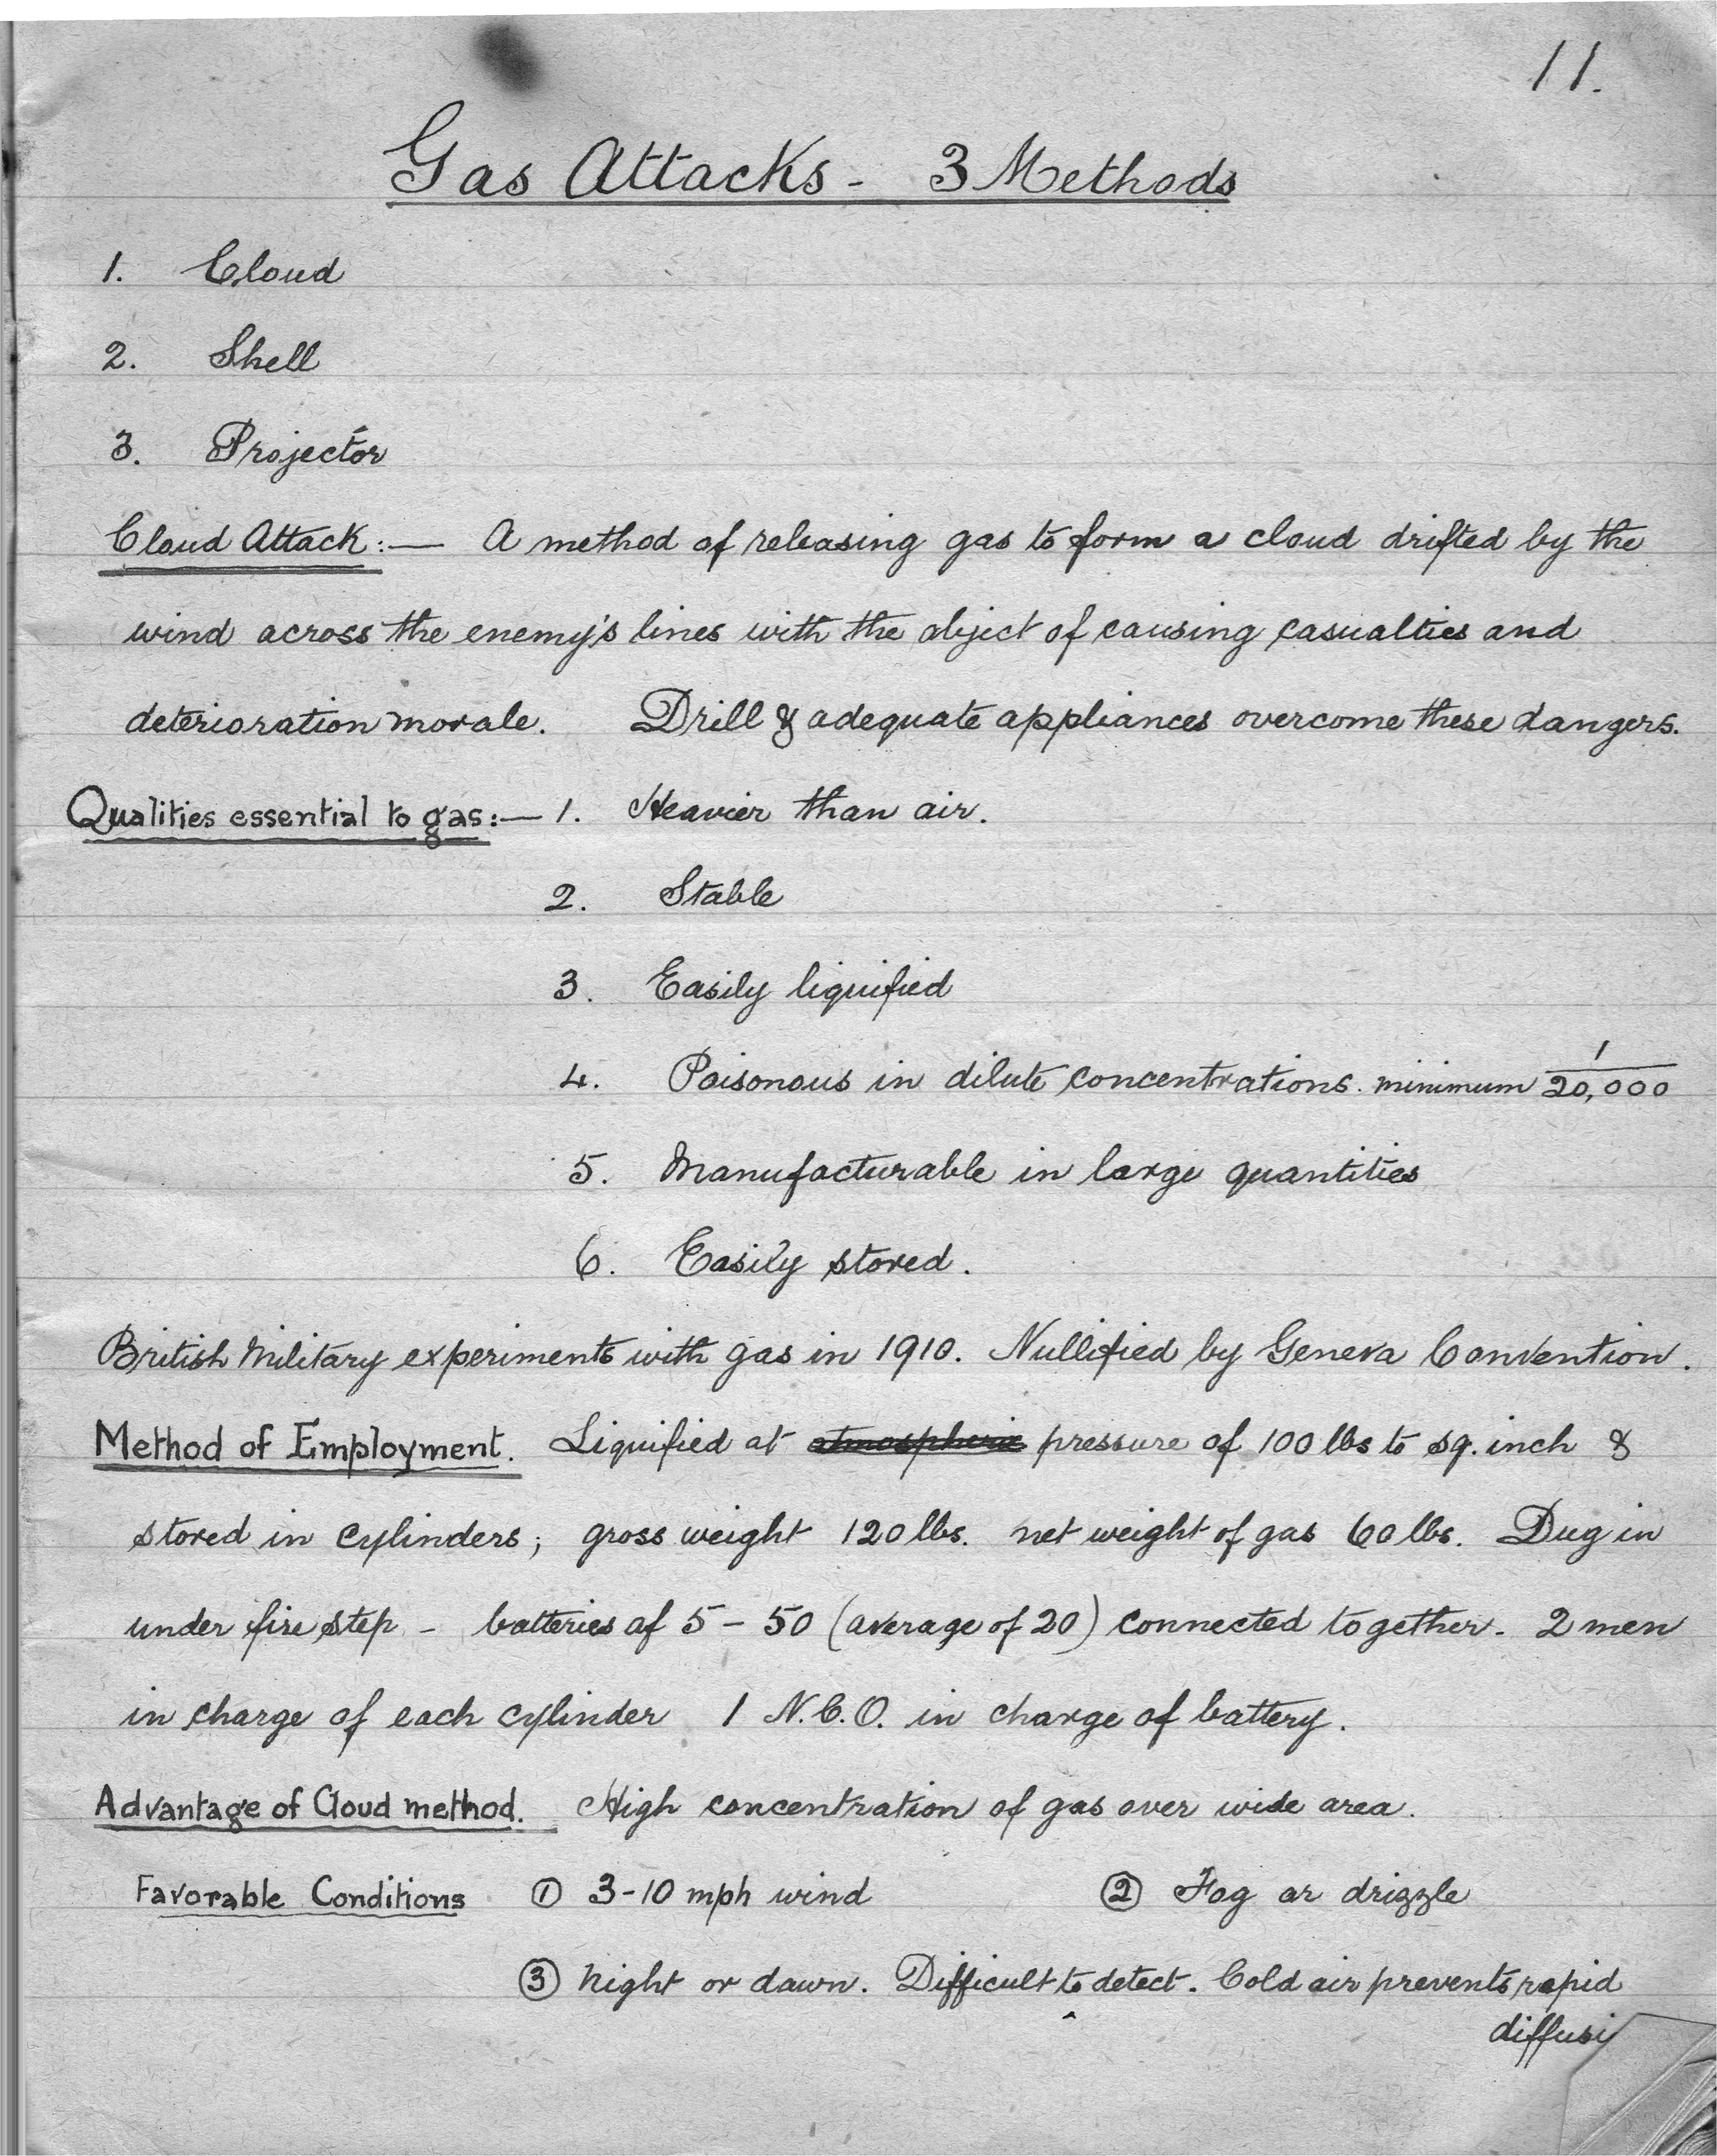 11.
Gas Attacks - 3 Methods
1. Cloud
2. Shell
3. Projector
Cloud Attack :— A method of releasing gas to form a cloud drifted by the
wind across the enemy's lines with the object of causing casualties and
deterioration morale. Drill & adequate appliances overcome these dangers.
Qualities essential to gas :— 1. Heavier than air.
2. Stable
3. Easily liquified
4. Poisonous in dilute concentrations. minimum 1/20,000
5. Manufacturable in large quantities
6. Easily stored.
British Military experiments with gas in 1910. Nullified by Geneva Convention.
Method of Employment. Liquified at atmospheric pressure of 100 lbs to sq. inch &
stored in cylinders; gross weight 120 lbs. net weight of gas 60 lbs. Dug in
under fire step - batteries of 5 - 50 (average of 20) connected together - 2 men
in charge of each cylinder 1 N.C.O. in charge of battery.
Advantage of Cloud method. High concentration of gas over wide area.
Favorable Conditions ① 3-10 mph wind ② Fog or drizzle
③ Night or dawn. Difficult to detect. Cold air prevents rapid
diffusi